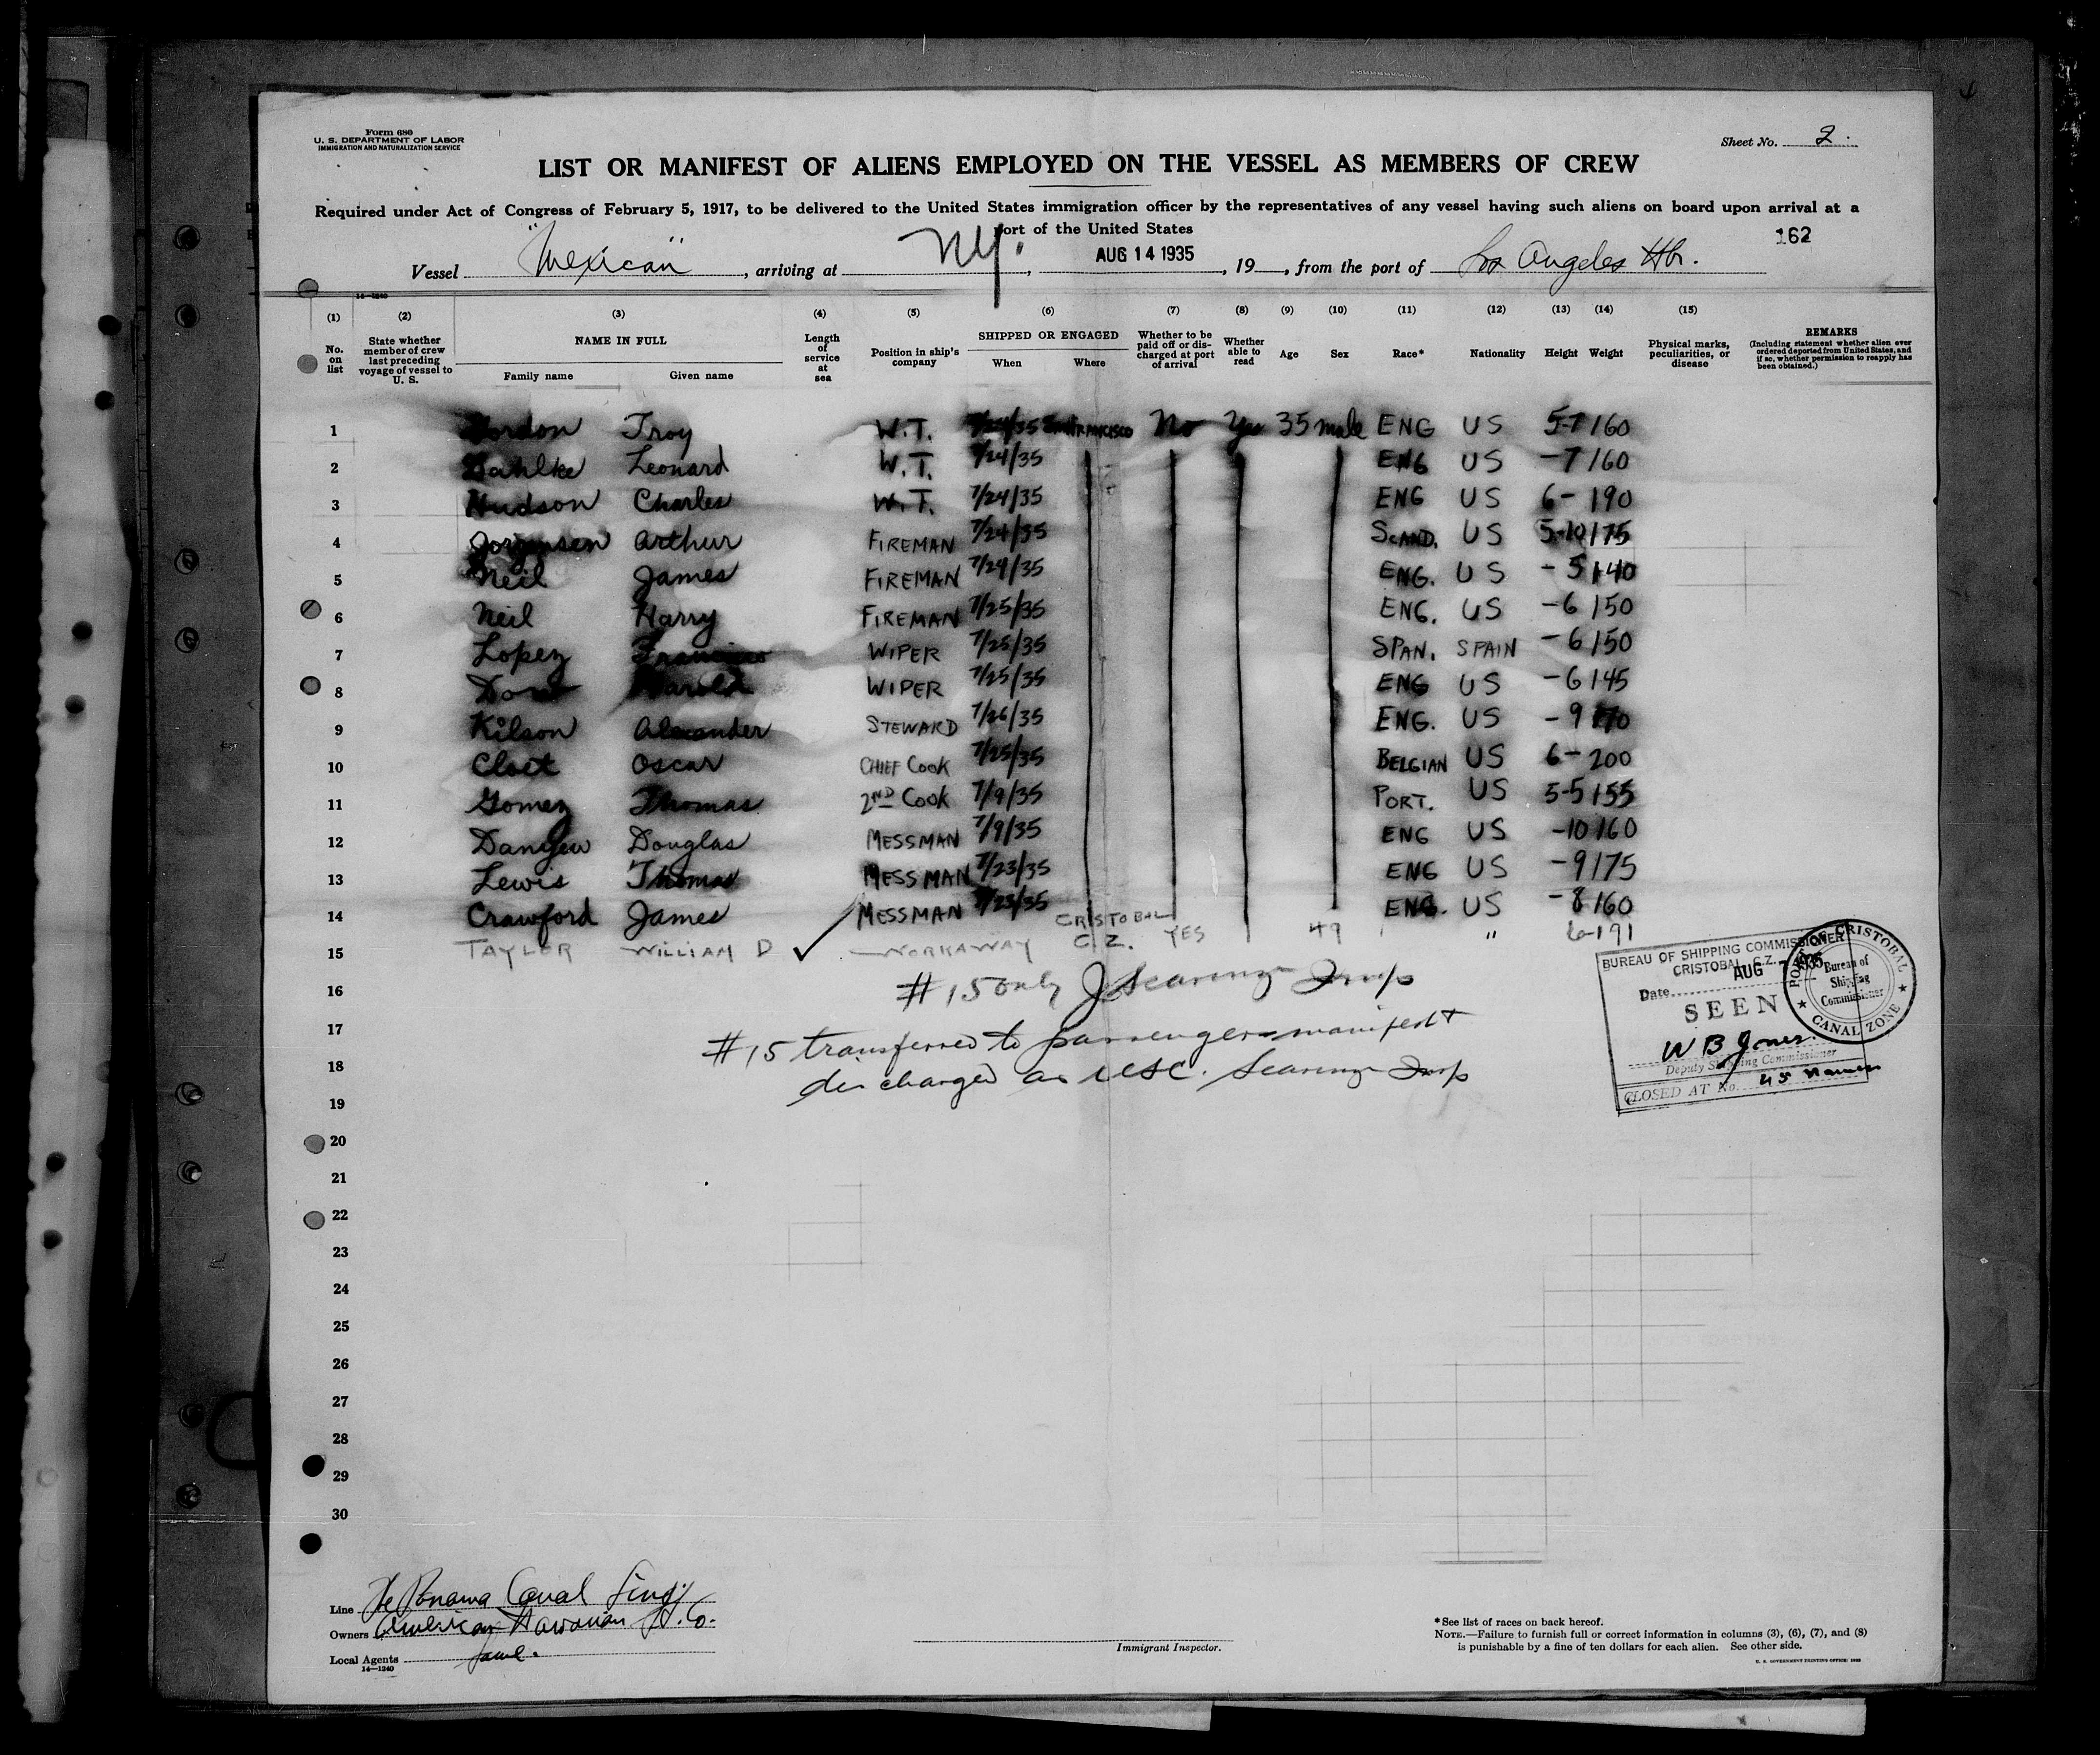 Form 680
U. S. DEPARTMENT OF LABOR
IMMIGRATION AND NATURALIZATION SERVICE
Sheet No. 2
LIST OR MANIFEST OF ALIENS EMPLOYED ON THE VESSEL AS MEMBERS OF CREW
Required under Act of Congress of February 5, 1917, to be delivered to the United States immigration officer by the representatives of any vessel having such aliens on board upon arrival at a
port of the United States
162
Vessel "Mexican", arriving at NY., AUG 14 1935, 19, from the port of Los Angeles Hbr.
14—1240
(1) (2) (3) (4) (5) (6) (7) (8) (9) (10) (11) (12) (13) (14) (15)
No. on list
State whether member of crew last preceding voyage of vessel to U. S.
NAME IN FULL
Family name Given name
Length of service at sea
Position in ship's company
SHIPPED OR ENGAGED
When Where
Whether to be paid off or discharged at port of arrival
Whether able to read
Age Sex Race* Nationality Height Weight
Physical marks, peculiarities, or disease
REMARKS
(Including statement whether alien ever ordered deported from United States, and if so, whether permission to reapply has been obtained.)
1 Gordon Troy W.T. 7/24/35 San FRANCISCO No Yes 35 male ENG US 5-7 160
2 Dahlke Leonard W.T. 7/24/35 ENG US -7 160
3 Hudson Charles W.T. 7/24/35 ENG US 6- 190
4 Jorgensen Arthur FIREMAN 7/24/35 SCAND. US 5-10 175
5 Neil James FIREMAN 7/24/35 ENG. US -5 140
6 Neil Harry FIREMAN 7/25/35 ENG. US -6 150
7 Lopez WIPER 7/25/35 SPAN. SPAIN -6 150
8 Harold WIPER 7/25/35 ENG US -6 145
9 Kilson Alexander STEWARD 7/26/35 ENG. US -9 170
10 Cloet Oscar CHIEF COOK 7/25/35 BELGIAN US 6- 200
11 Gomez Thomas 2ND COOK 7/9/35 PORT. US 5-5 155
12 Douglas MESSMAN 7/9/35 ENG US -10 160
13 Lewis Thomas MESSMAN 7/23/35 ENG US -9 175
14 Crawford James MESSMAN 7/23/35 ENG. US -8 160
15 TAYLER WILLIAM D ✓ WORKAWAY CRISTOBAL C.Z. YES 49 " 6-191
16 #15 only J Scarinzi Insp
17 #15 transferred to passenger manifest +
18 discharged as USC. Scarinzi Insp
19
20
21
22
23
24
25
26
27
28
29
30
BUREAU OF SHIPPING COMMISSIONER
CRISTOBAL, C.Z.
Date AUG 7 1935
SEEN
W B Jones
Deputy Shipping Commissioner
CLOSED AT No. 45 Names
PORT OF CRISTOBAL
Bureau of Shipping Commissioner
CANAL ZONE
Line The Panama Canal Line
Owners American Hawaiian S.S. Co.
Local Agents Same.
14—1240
Immigrant Inspector.
*See list of races on back hereof.
NOTE.—Failure to furnish full or correct information in columns (3), (6), (7), and (8)
is punishable by a fine of ten dollars for each alien. See other side.